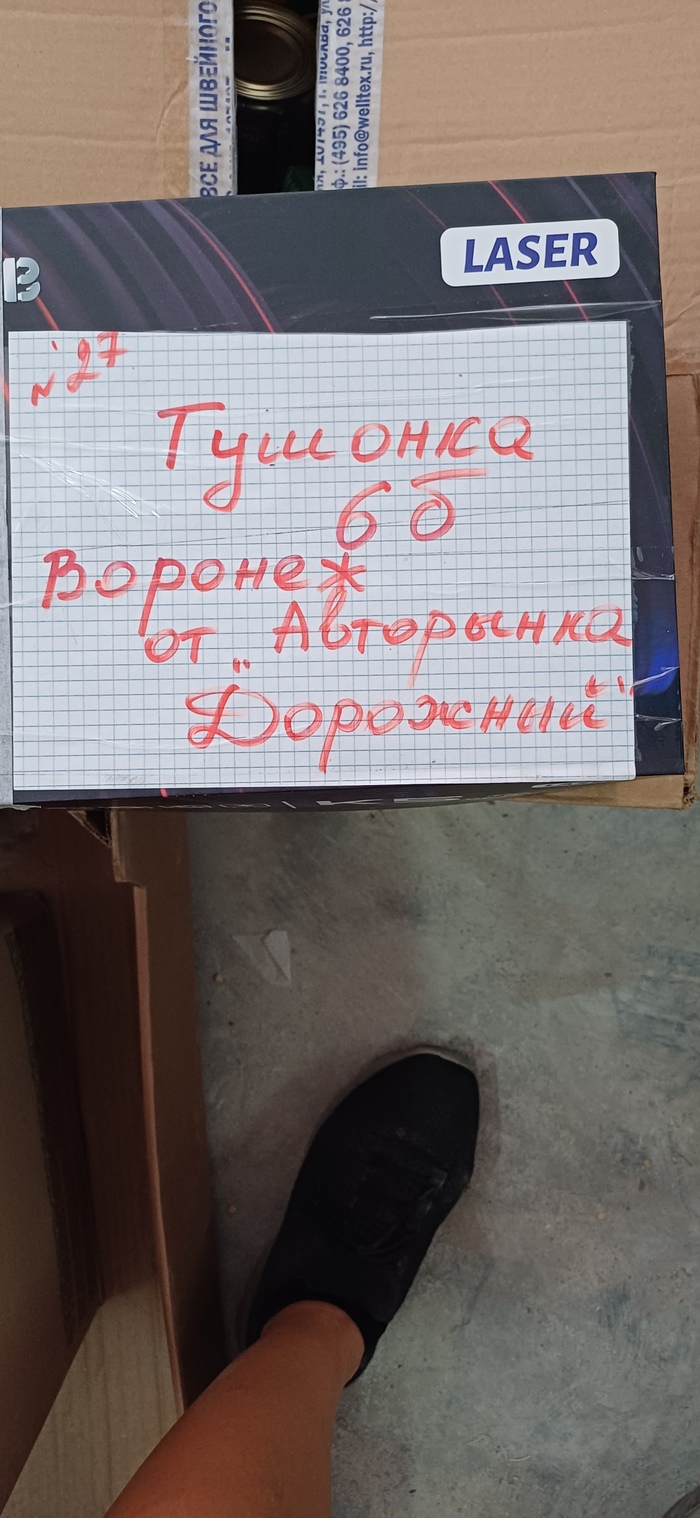 ВСЕ ДЛЯ ШВЕЙНОГО
107497, г. Москва, ул
ф.: (495) 626 8400, 626 8
il: info@welltex.ru, http:/
LASER
№27
Тушонка
6 б
Воронеж
от „Авторынка
Дорожный"